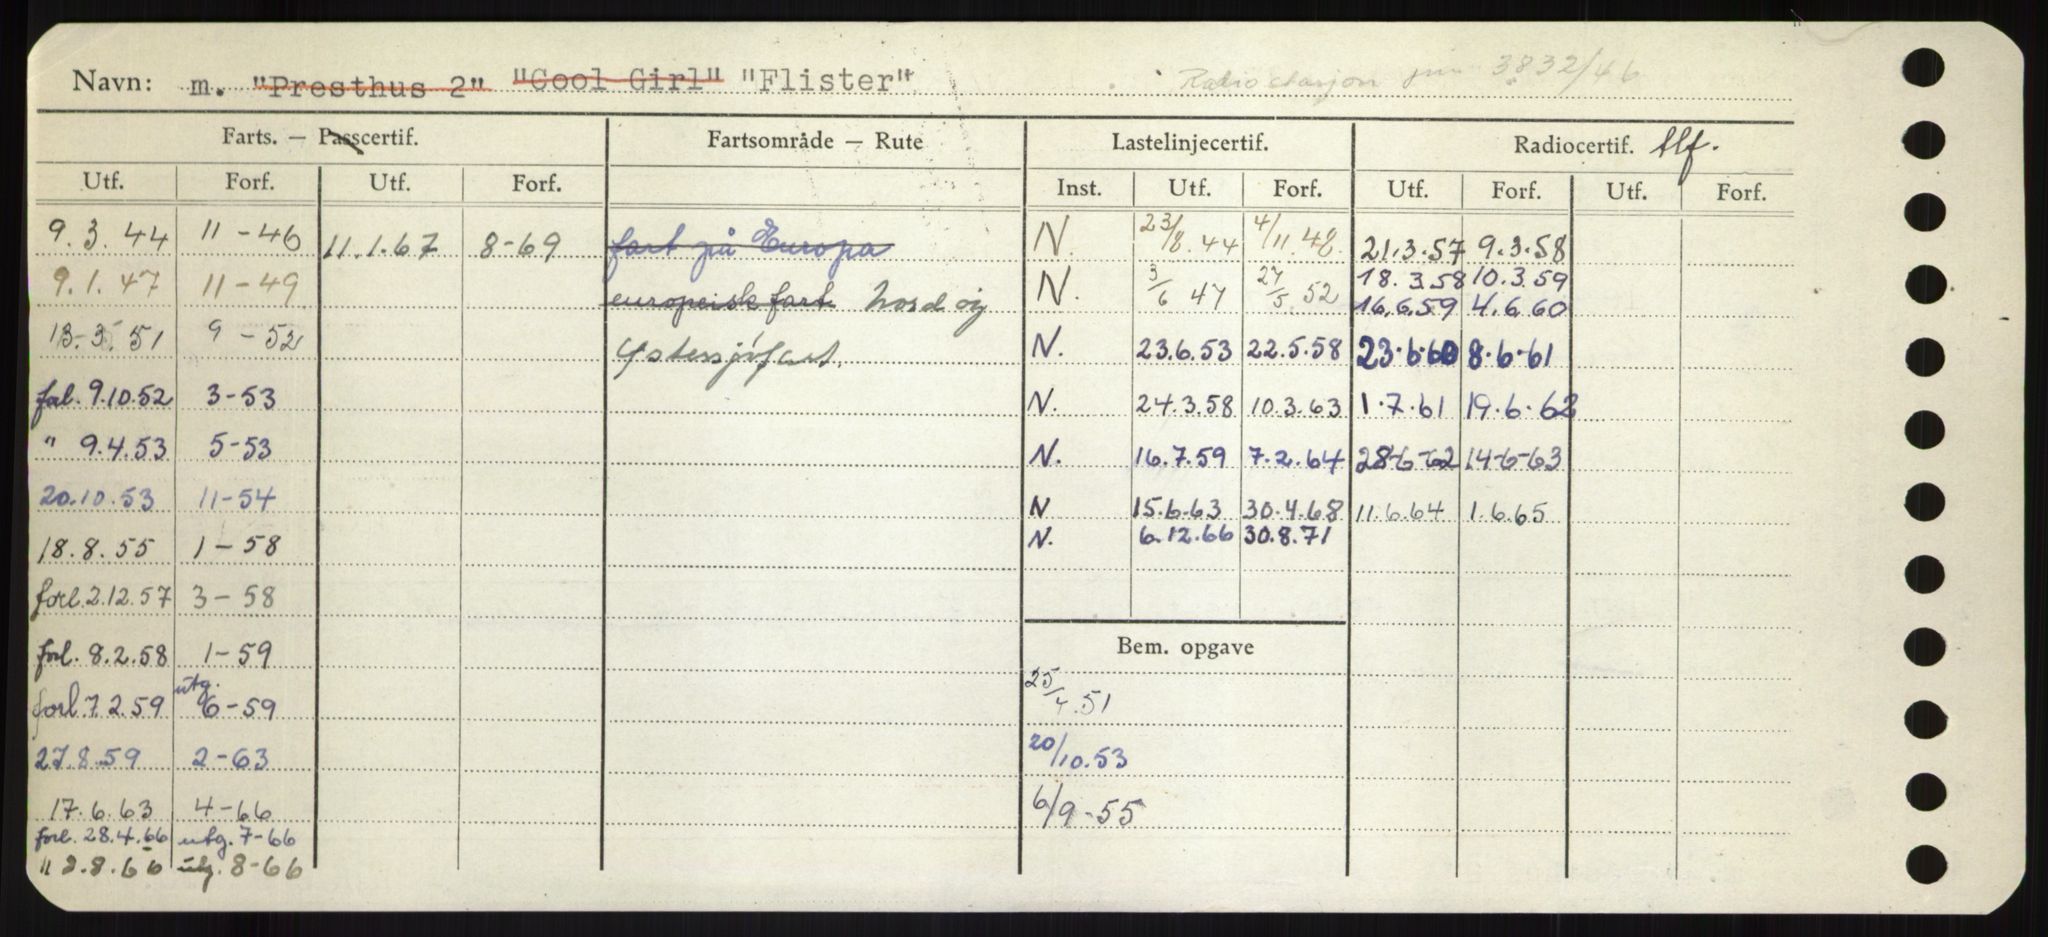 Navn: m. "Presthus 2" "Cool Girl" "Flister" Radiostasjon jnr 3832/46
Farts. — Passcertif. Fartsområde — Rute Lastelinjecertif. Radiocertif. tlf.
Utf. Forf. Utf. Forf. Inst. Utf. Forf. Utf. Forf. Utf. Forf.
9.3.44 11-46 11.1.67 8-69 fart på Europa N. 23/8.44 4/11.48 21.3.57 9.3.58
9.1.47 11-49 europeisk fart Nord og N. 3/6 47 27/5 52 18.3.58 10.3.59
16.6.59 4.6.60
13.3.51 9-52 Østersjøfart. N. 23.6.53 22.5.58 23.6.60 8.6.61
fal. 9.10.52 3-53 N. 24.3.58 10.3.63 1.7.61 19.6.62
" 9.4.53 5-53 N. 16.7.59 7.2.64 28-6-62 14-6-63
20.10.53 11-54 N 15.6.63 30.4.68 11.6.64 1.6.65
18.8.55 1-58 N. 6.12.66 30.8.71
forl. 2.12.57 3-58
forl. 8.2.58 1-59 Bem. opgave
forl. 7.2.59 utg. 6-59 25/4.51
27.8.59 2-63 20/10.53
17.6.63 4-66 6/9-55
forl. 28.4.66 utg. 7-66
" 2.8.66 utg. 8-66